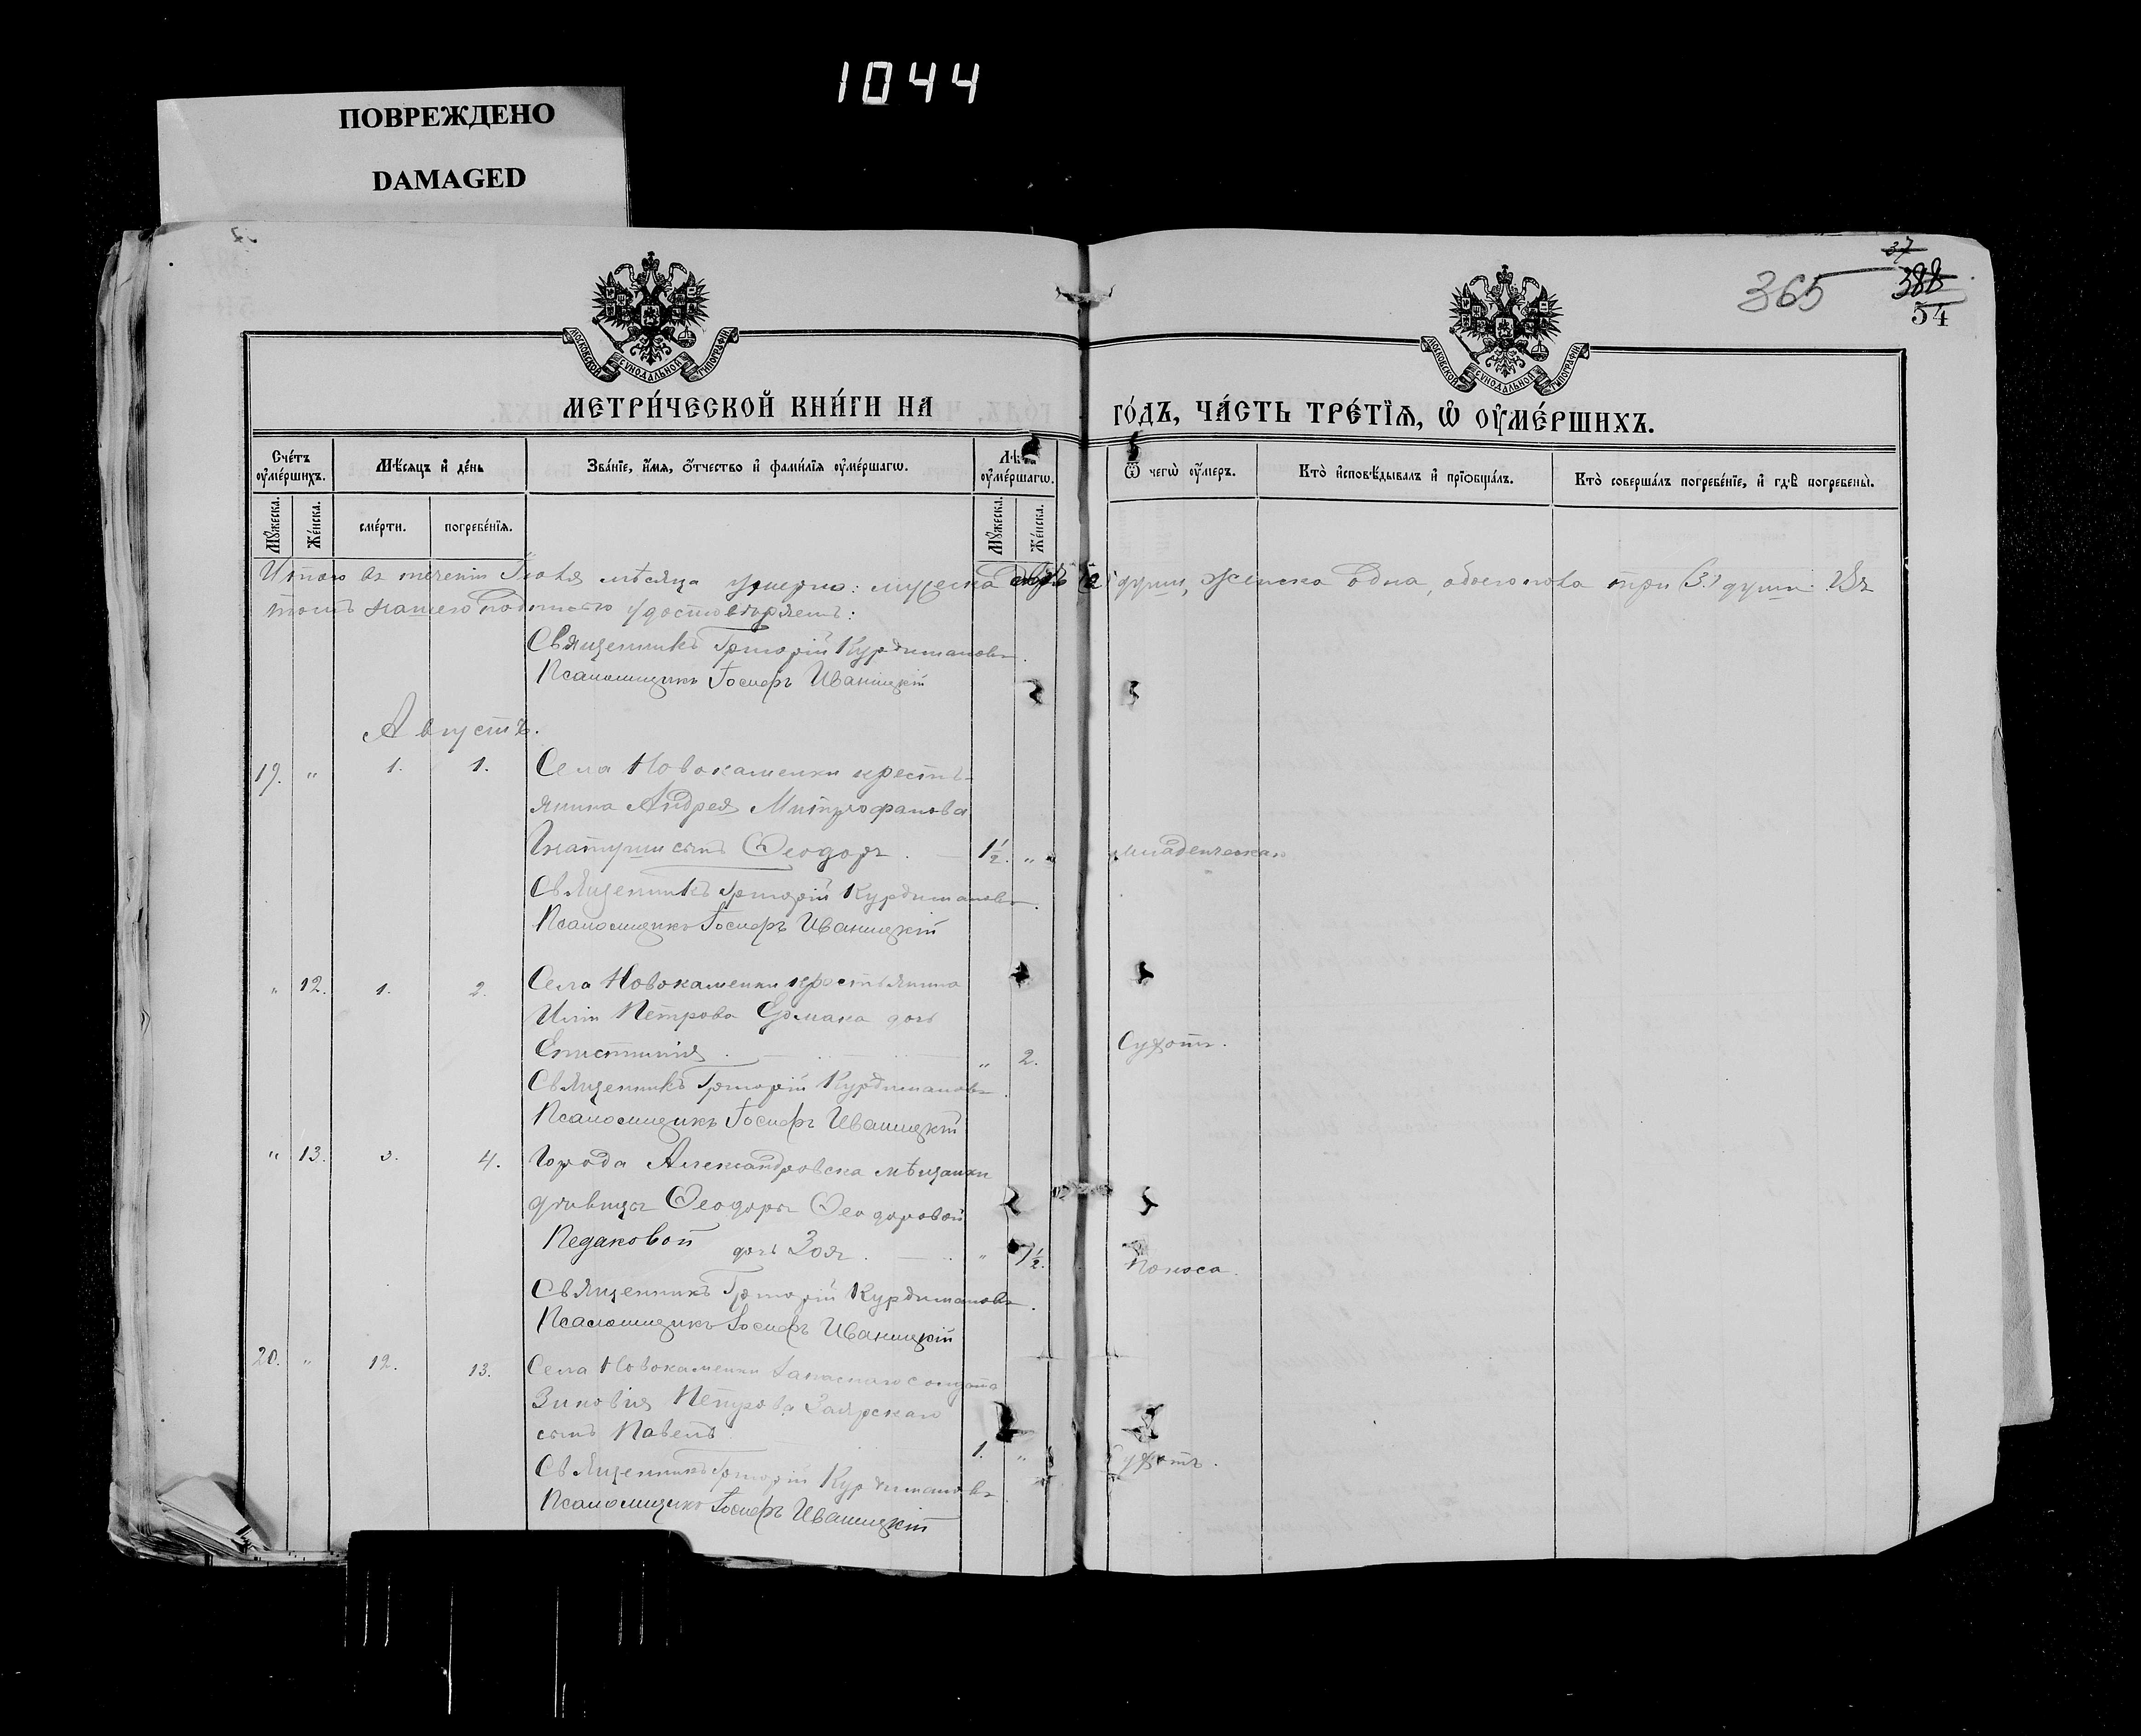 1044
ПОВРЕЖДЕНО
DAMAGED
37
365
388
54
МОСКОВСКОЙ СѴНОДАЛЬНОЙ ТИПОГРАФІИ
МОСКОВСКОЙ СѴНОДАЛЬНОЙ ТИПОГРАФІИ
МЕТРИ́ЧЕСКОЙ КНИ́ГИ НА ГО́ДЪ, ЧА́СТЬ ТРЕ́ТЇѦ, Ѡ҆ ОУ҆МЕ́РШИХЪ.
Сче́тъ оу҆ме́ршихъ.
Мѣ́сяцъ и҆ де́нь
Зва́нїе, и҆́мя, ѻ҆́тчество и҆ фами́лїя оу҆ме́ршагѡ.
Лѣ́ оу҆ме́ршагѡ.
Ѿ чегѡ̀ оу҆́меръ.
Кто̀ и҆сповѣ́дывалъ и҆ прїѻбща́лъ.
Кто̀ соверша́лъ погребе́нїе, и҆ гдѣ̀ погребены̀.
Мꙋ́жеска.
Же́нска.
сме́рти.
погребе́нїѧ.
Мꙋ́жеска.
Же́нска.
Итого въ теченіи Іюля мѣсяца умерло: мужеска двѣ (2) души, женска одна, обоего пола три (3.) души. Въ
томъ нашею подписью удостовѣряемъ:
Священникъ Григорій Курдимановъ.
Псаломщикъ Іосифъ Иваницкій
Августъ.
19. " 1. 1. Села Новокаменки кресть-
янина Андрея Митрофанова
сынъ Ѳеодоръ. 1½. " младенческая
Священникъ Григорій Курдимановъ.
Псаломщикъ Іосифъ Иваницкій
" 12. 1. 2. Села Новокаменки крестьянина
Иліи Петрова Ермака дочь
Епистимія " 2. Сухотъ.
Священникъ Григорій Курдимановъ.
Псаломщикъ Іосифъ Иваницкій
" 13. 3. 4. Города Александровска мѣщанки
дѣвицы Ѳеодоры Ѳеодоровой
Педаковой дочь Зоя. " ½. Поноса.
Священникъ Григорій Курдимановъ.
Псаломщикъ Іосифъ Иваницкій
20. " 12. 13. Села Новокаменки запаснаго солдата
Зиновія Петрова Заярскаго
сынъ Павелъ 1. " Сухотъ.
Священникъ Григорій Курдимановъ
Псаломщикъ Іосифъ Иваницкій